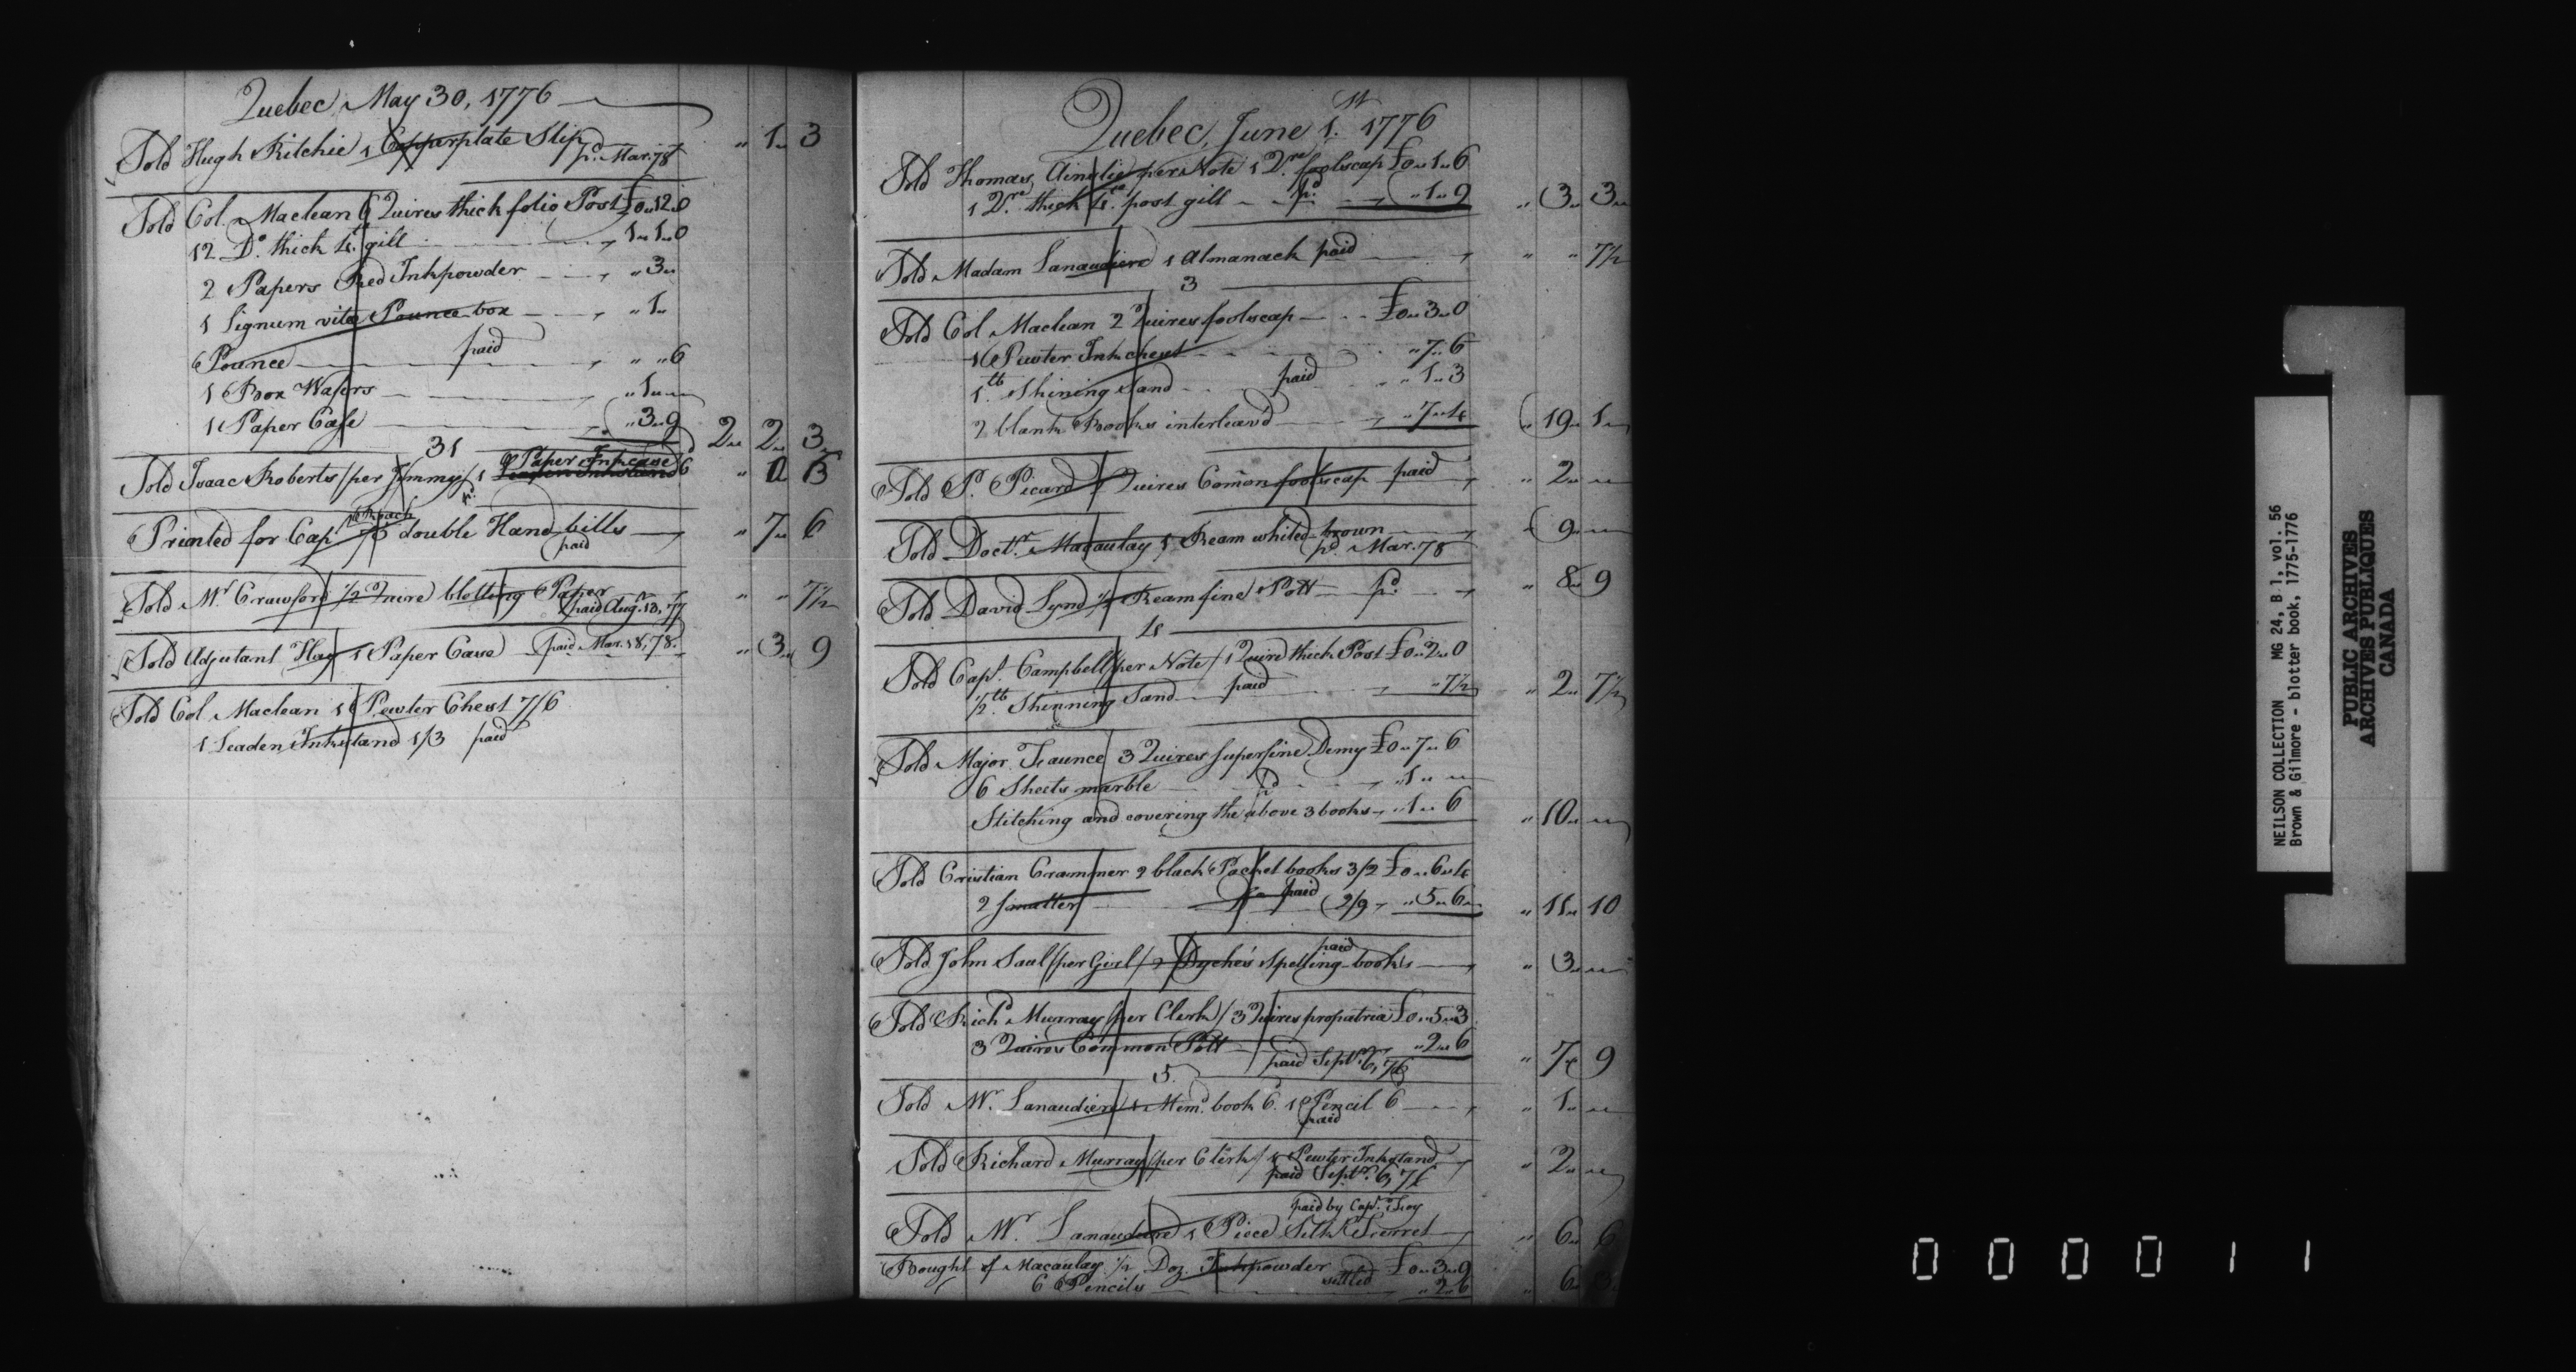 Quebec, May 30, 1776
Sold Hugh Ritchie 1 Copperplate Slip " 1 " 3
pd. Mar. 78
Sold Col. Maclean 6 Quires thick folio Post £0 " 12 " 0
12 Do. thick 4to. gilt 1 " 1 " 0
2 Papers Red Inkpowder " 3 "
1 Lignum vitæ Pounce box " 1 "
6 Pounce paid " " 6
1 Box Wafers " 1 "
1 Paper Case " 3 " 9 2 " 2 " 3
31
Sold Isaac Roberts /per Jimmy/ 1 Paper Inkcase 6
Printed for Capt. double Hand bills " 7 " 6
paid
Sold Mr. Crawford 1/2 Quire blotting Paper " " 7½
paid Aug. 13, 77
Sold Adjutant Hay 1 Paper Case paid Mar. 18, 78. " 3 " 9
Sold Col. Maclean 1 Pewter Chest 7/6
1 Leaden Inkstand 1/3 paid
Quebec, June 1st. 1776
Sold Thomas Ainslie per Note 1 Qre. foolscap £0 " 1 " 6
1 Qre. thick 4to. post gilt pd. " 1 " 9 " 3 " 3
Sold Madam Lanaudiere 1 Almanack paid " " 7½
3
Sold Col. Maclean 2 Quires foolscap £0 " 3 " 0
1 Pewter Inkchest " 7 " 6
1 lb. Shining Sand paid " 1 " 3
2 blank Books interleav'd " 7 " 4 19 " 1
Sold P. Picard 2 Quires Comon foolscap paid " 2 "
Sold Doctr. Macaulay 1 Ream whited-brown " 9 "
pd. Mar. 78
Sold David Lynd ½ Ream fine Pott pd. " 8 " 9
4
Sold Capt. Campbell /per Note/ 1 Quire thick Post £0 " 2 " 0
½ lb. Shinning Sand paid " 7½ " 2 " 7½
Sold Major Faunce 3 Quires superfine Demy £0 " 7 " 6
6 Sheets marble pd. " 1 "
Stitching and covering the above 3 books " 1 " 6 " 10 "
Sold Cristian Crammer 2 black Pocket books 3/2 £0 " 6 " 4
2 smaller paid 2/9 " 5 " 6 " 11 " 10
Sold John Saul /per Girl/ 2 Dyche's Spelling-books paid " 3 "
Sold Richd. Murray /per Clerk/ 3 Quires propatria £0 " 5 " 3
3 Quires Common Pott " 2 " 6 " 7 " 9
paid Septr. 6, 76
5
Sold Mr. Lanaudiere 1 Memd. book 6. 1 Pencil 6 " 1 "
paid
Sold Richard Murray /per Clerk/ 1 Pewter Inkstand " 2 "
paid Septr. 6, 76
paid by Capt.
Sold Mr. Lanaudiere 1 Piece Silk Ferret " 6 " 6
Bought of Macaulay ½ Doz. Inkpowder £0 " 3 " 9
6 Pencils settled " 2 " 6 " 6 " 3
NEILSON COLLECTION MG 24, B 1, vol. 56
Brown & Gilmore - blotter book, 1775-1776
PUBLIC ARCHIVES
ARCHIVES PUBLIQUES
CANADA
000011